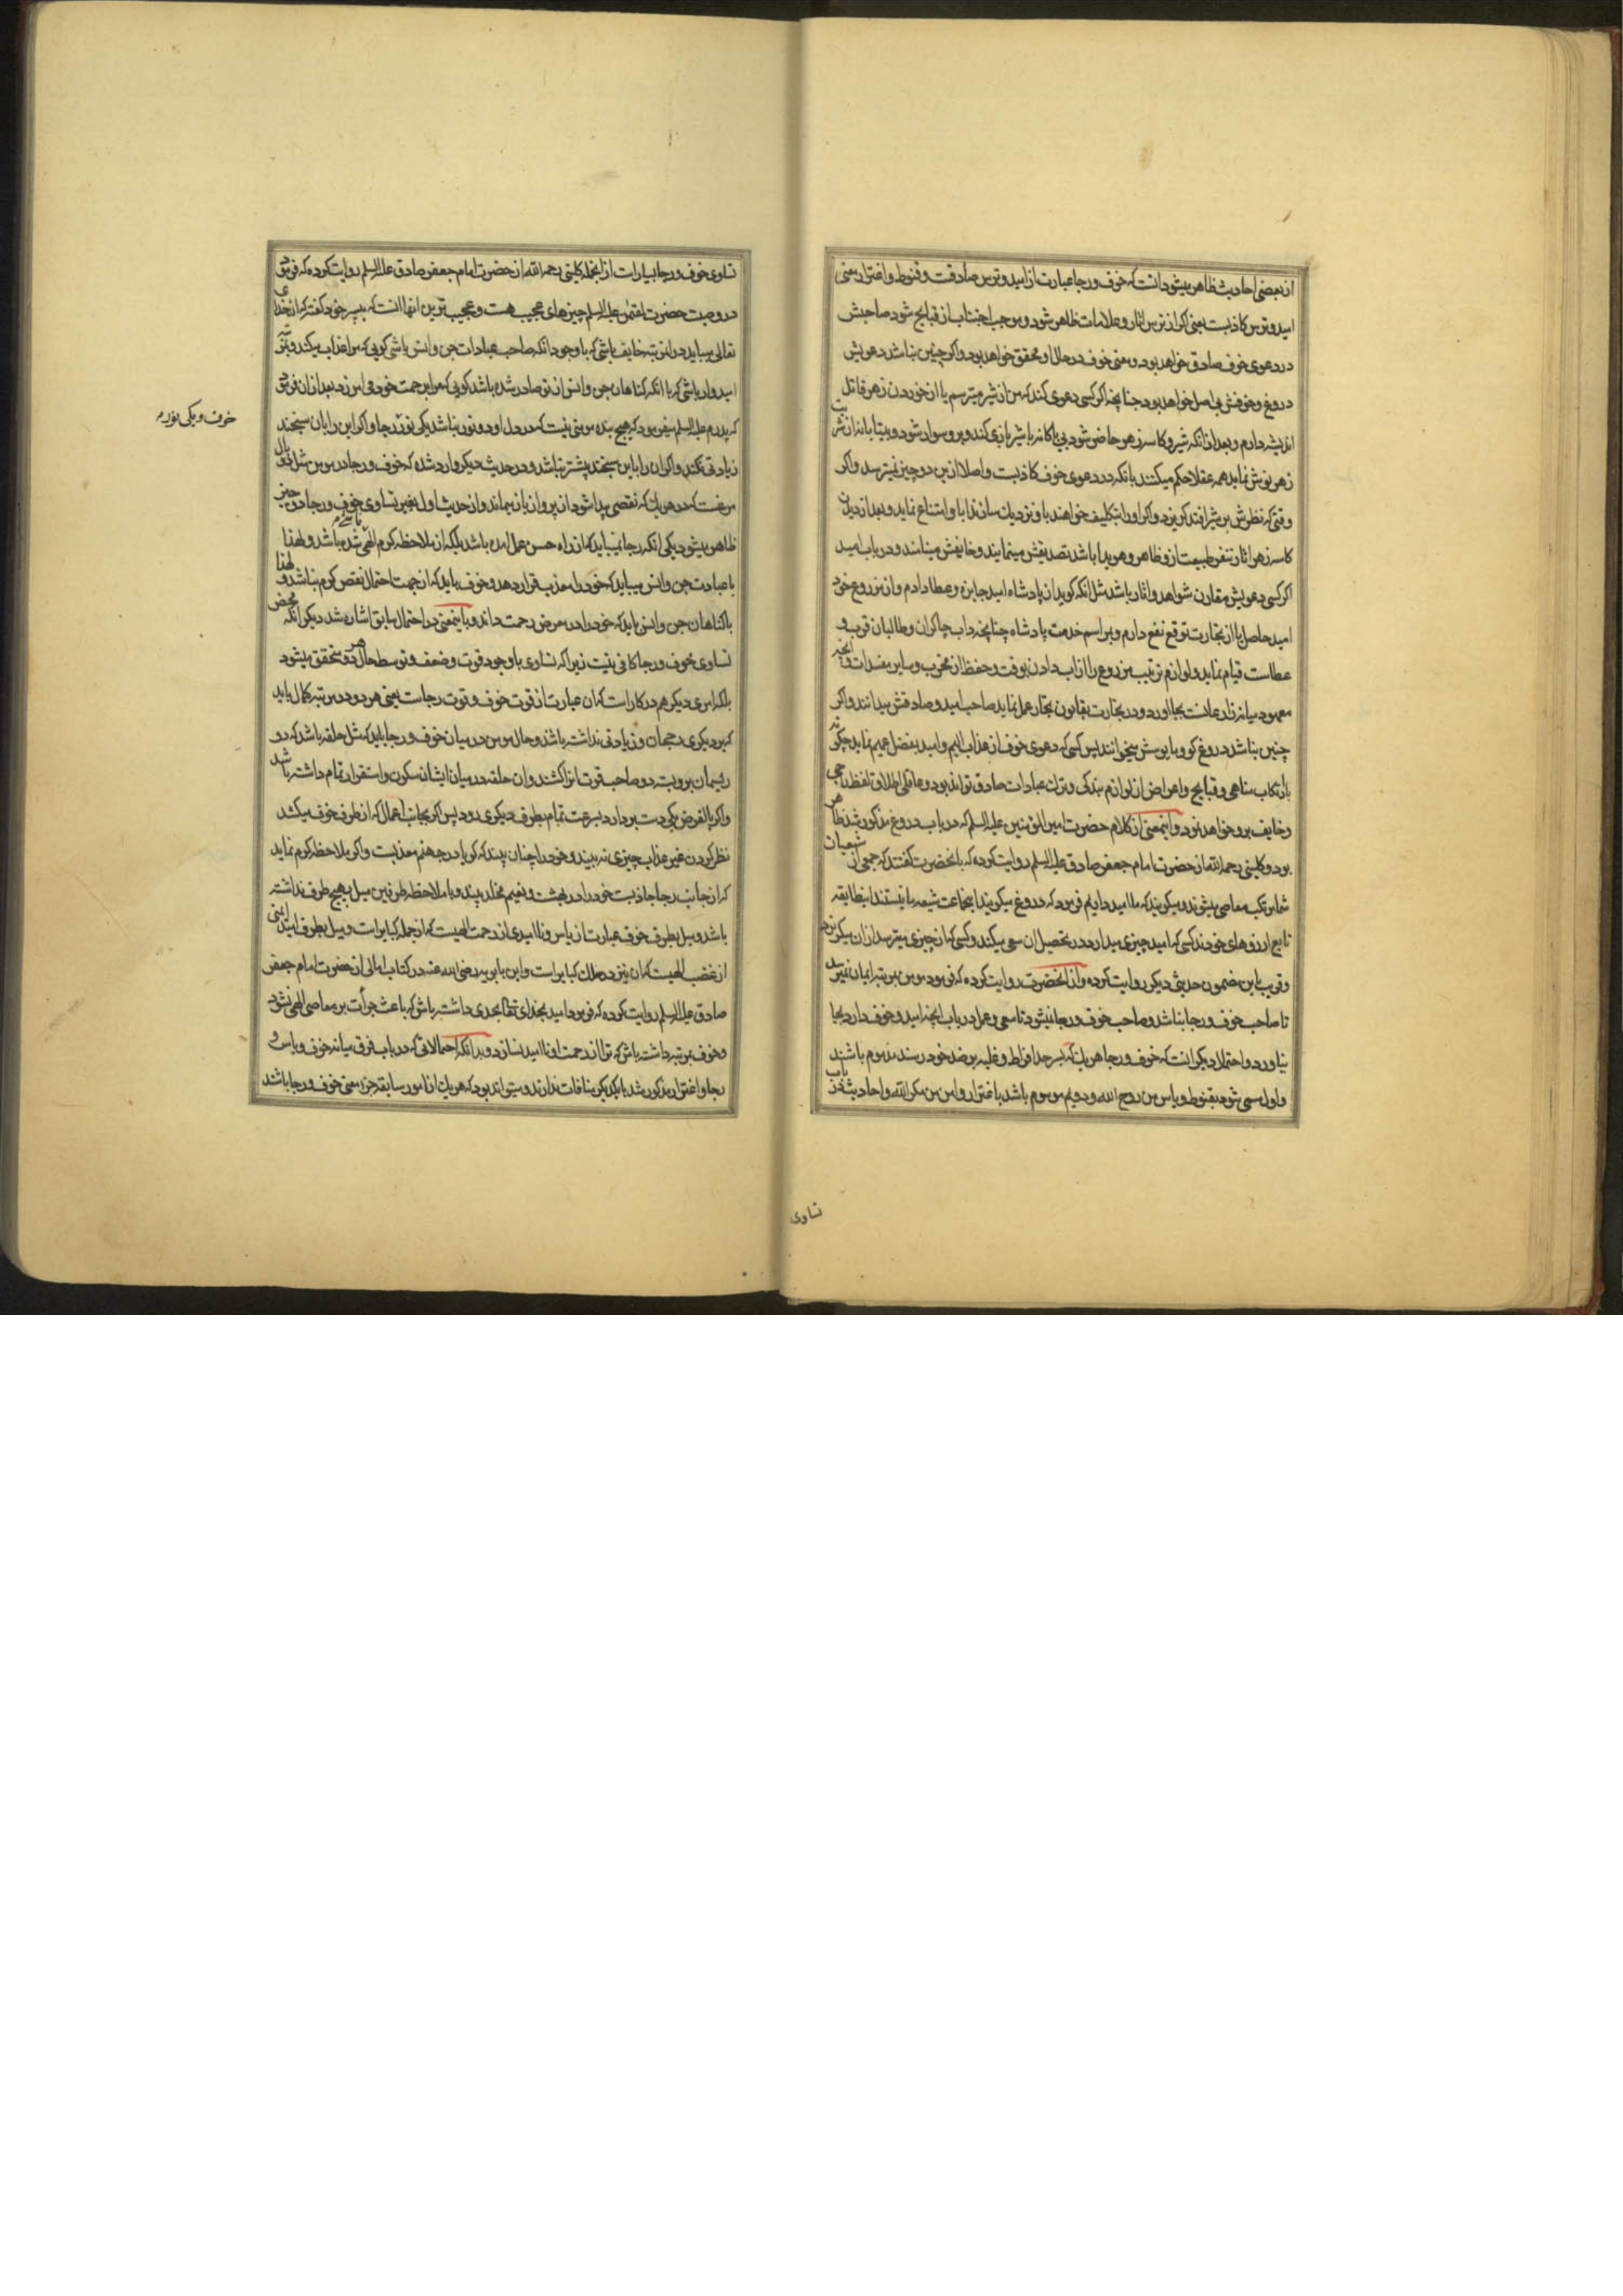 از بعضی احادیث ظاهر میشود انست که خوف و رجا عبارت از امید و ترس صادقت و قنوط و اغترار یعنی
امید و ترس کاذبست یعنی اکر از ترس اثار و علامات ظاهر شود و موجب اجتناب از قبایح شود صاحبش
در دعوی خوف صادق خواهد بود و معنی خوف در حال او محقق خواهد بود و اکر چنین نباشد دعویش
دروغ و خوفش بی اصل خواهد بود چنانچه اکر کسی دعوی کند که من از شیر میترسم یا از خوردن زهر قاتل
اندیشه دارم و بعد از انکه شیر و کاسه زهر حاضر شود بی باکانه با شیر بازی کند و برو سوار شود و بیتابانه از شربت
زهر نوش نماید همه عقلا حکم میکنند بانکه در دعوی خوف کاذبست و اصلا از ین دو چیز نمیترسد و اکر
وقتی که نظرش بر شیر افتد کریزد و اکر او را تکلیف خواهند با و نزدیك سازند ابا و امتناع نماید و بعد از دیدن
کاسه زهر اثار تنفر طبیعت از و ظاهر و هویدا باشد تصدیقش مینمایند و خایفش مینامند و در باب امید
اکر کسی دعویش مقارن شواهد و اثار باشد مثل انکه کوید از پادشاه امید جایزه و عطا دارم و از مزروع خود
امید حاصل یا از تجارت توقع نفع دارم و بمراسم خدمت پادشاه چنانچه داب چاکران و طالبان قرب و
عطاست قیام نماید و لوازم تربیت مزروع را از اب دادن بوقت و حفظ از مخرب و سایر مفسدات و انچه
معمود میانه زارعانست بجا اورد و در تجارت بقانون تجار عمل نماید صاحب امید و صادقش میدانند و اکر
چنین نباشد دروغ کو و مایوسش میخوانند پس کسی که دعوی خوف از عذاب الیم و امید بفضل عمیم نماید چکونه
بارتکاب مناهی و قبایح و اعراض از لوازم بندکی و ترك عبادات صادق تواند بود و عاقلی اطلاق لفظ راجی
و خایف برو خواهد نمود و اینمعنی از کلام حضرت امیر المؤمنین علیه السلم که در باب دروغ مذکور شد ظاهر
بود و کلینی رحمه الله از حضرت امام جعفر صادق علیه السلم روایت کرده که بانحضرت کفتند که جمعی از شیعیان
شما مرتکب معاصی میشوند و میکویند که ما امید داریم فرمود که دروغ میکویند اینجماعت شیعه ما نیستند اینطایفه
تابع ارزوهای خودند کسی که امید چیزی میدارد در تحصیل ان سعی میکند و کسی که از چیزی میترسد از ان میکریزد
و قریب باین مضمون حدیثی دیکر روایت کرده و از انحضرت روایت کرده که فرمود مومن بمرتبه ایمان نمیرسد
تا صاحب خوف و رجا نباشد و صاحب خوف و رجا نمیشود تا سعی و عمل در باب انچه امید و خوف دارد بجا
نیاورد و احتمال دیکر انست که خوف و رجا هر یك که بسر حد افراط و غلبه بر ضد خود رسند مذموم باشند
و اول مسمی شود بقنوط و یاس من روح الله و دویم موسوم باشد باغترار و امن من مکر الله و احادیث در باب
تساوی
تساوی خوف و رجا بسیارست از انجمله کلینی رحمه الله از حضرت امام جعفر صادق علیه السلم روایت کرده که فرمود
در وصیت حضرت لقمن علیه السلم چیزهای عجیب هست و عجیب ترین انها انست که بپسر خود کفته که از خدای
تعالی میباید در ان مرتبه خایف باشی که با وجود انکه صاحب عبادات جن و انس باشی کویی که مرا عذاب میکند و بمرتبه
امیدوار باشی که با انکه کناهان جن و انس از تو صادر شده باشد کویی که مرا برحمت خود می امرزد بعد از ان فرمود
که پدرم علیه السلم میفرمود که هیچ بنده مومنی نیست که در دل او دو نور نباشد یکی نور رجا و اکر این را بان سنجند
خوف و یکی نور م
زیادتی نکند و اکر ان را باین سنجند بیشتر نباشد و در حدیث دیکر وارد شده که خوف و رجا در مومن مثل دو بال
مرغست که در هر یك که نقصی پیدا شود از پرواز باز میماند و از حدیث اول بغیر تساوی خوف و رجا دو چیز
ظاهر میشود یکی انکه رجا نمیباید که از راه حسن عمل امده باشد بلکه از ملاحظه کرم الهی ناشی شده باشد و لهذا
با عبادت جن و انس میباید که خود را معذب قرار دهد و خوف باید که از جهت احتمال نقص کرم نباشد و لهذا
با کناهان جن و انس باید که خود را در معرض رحمت داند و باینمعنی در احتمال سابق اشاره شد دیکر انکه محض
تساوی خوف و رجا کافی نیست زیرا که تساوی با وجود قوت و ضعف و توسط حال هر دو متحقق میشود
بلکه امری دیکر هم در کار است که ان عبارت از قوت خوف و قوت رجاست یعنی هر دو در مرتبه کمال باید
که بر دیکری رجحان و زیادتی نداشته باشد و حال مومن در میان خوف و رجا باید که مثل حلقه باشد که دو
ریسمان برو بسته دو صاحب قوت انرا کشند و ان حلقه در میان ایشان سکون و استقرار تمام داشته باشد
و اکر بالفرض یکی دست بردارد بسرعت تمام بطرف دیکری رود پس اکر بجانب اعمال که از طرف خوف میکشد
نظر کردن غیر عذاب چیزی نه بیند و خود را چنان بیند که کویا در جهنم معذبست و اکر ملاحظه کرم نماید
که از جانب رجا جاذبست خود را در بهشت و نعیم مخلد بیند و با ملاحظه طرفین میل بهیچ طرف نداشته
باشد و میل بطرف خوف عبارت از یاس و ناامیدی از رحمت الهیست که از جمله کبایر است و میل بطرف امید ایمنی
از غضب الهیست که ان نیز در سلك کبایر است و ابن بابویه رضی الله عنه در کتاب امالی از حضرت امام جعفر
صادق علیه السلم روایت کرده که فرمود امید بخدای تعالی بحدی داشته باش که باعث جرأت بر معاصی الهی نشود
و خوف بمرتبه داشته باش که ترا از رحمت او ناامید نسازد و بدانکه احتمالاتی که در باب فرق میانه خوف و یاس و
رجا و اغترار مذکور شد با یکدیکر منافات ندارند و میتواند بود که هر یك از امور سابقه جزء معنی خوف و رجا باشند